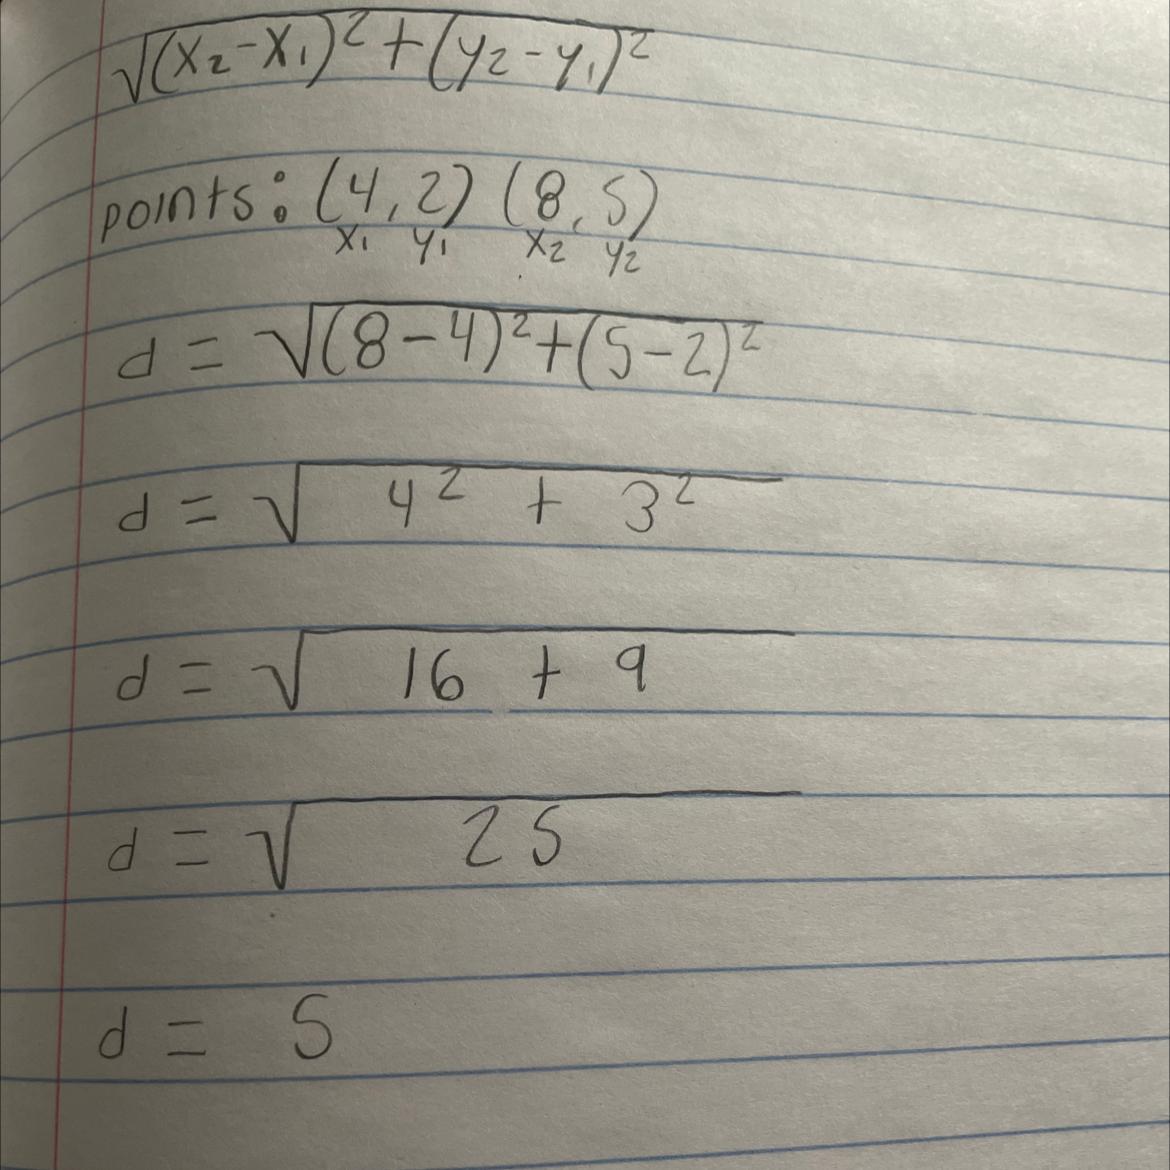 √(x₂-x₁)²+(y₂-y₁)²
points: (4,2) (8,5)
x₁ y₁ x₂ y₂
d = √(8-4)²+(5-2)²
d = √4² + 3²
d = √16 + 9
d = √25
d = 5